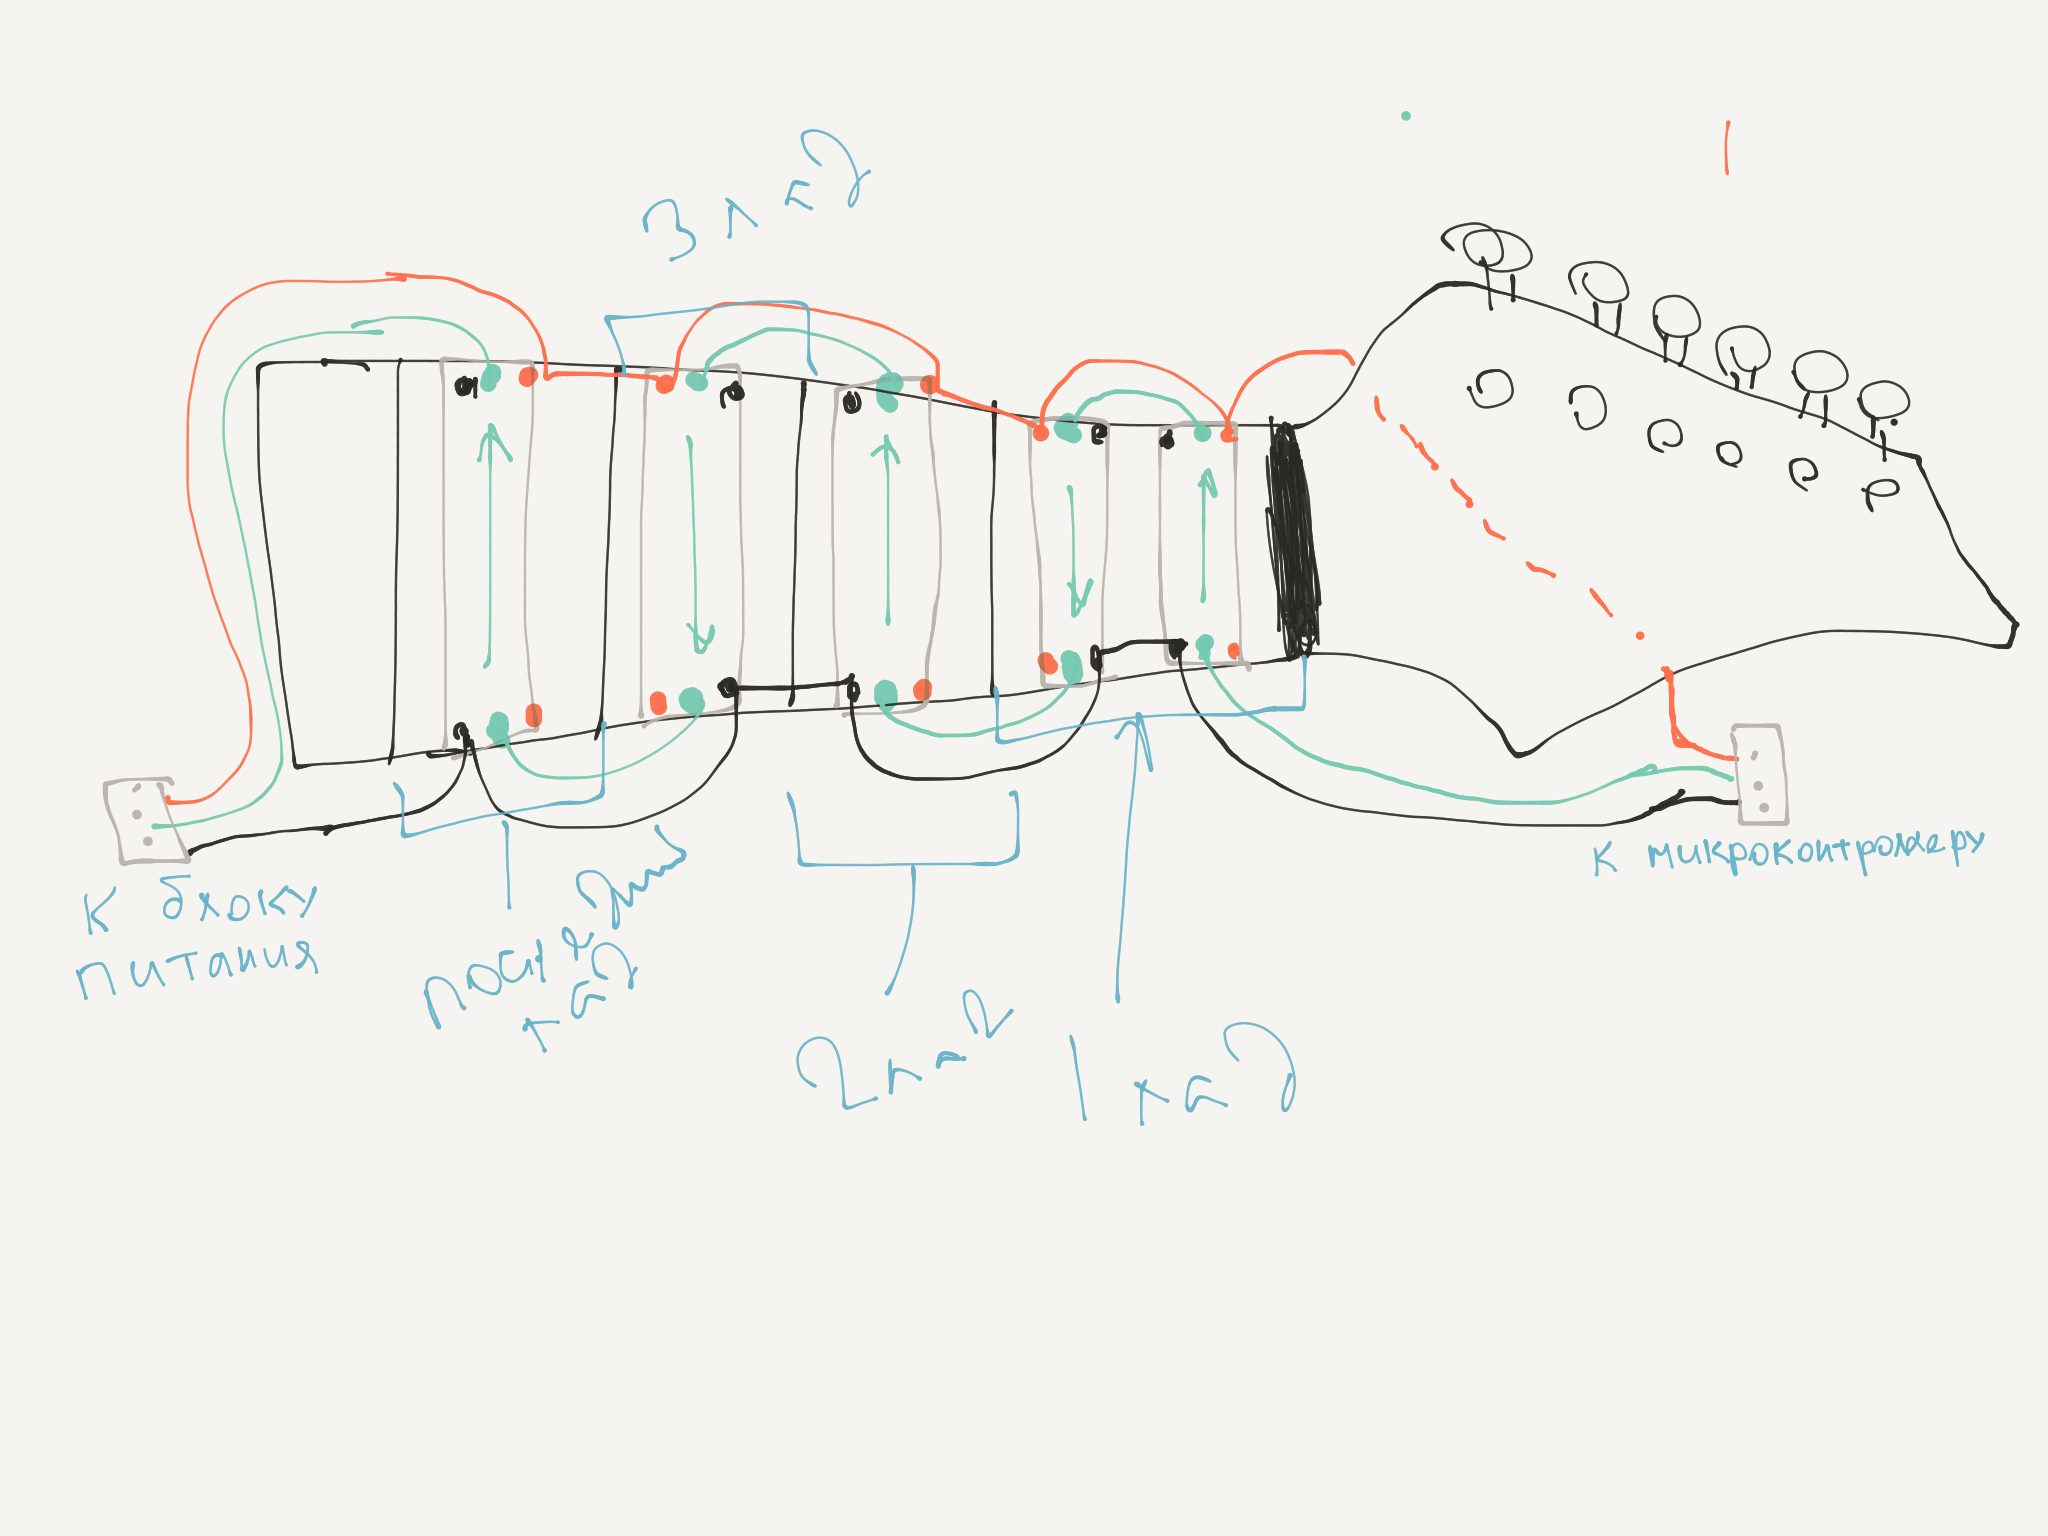 3 лад
к блоку
питания
последний
лад
2 лад
1 лад
к микроконтроллеру